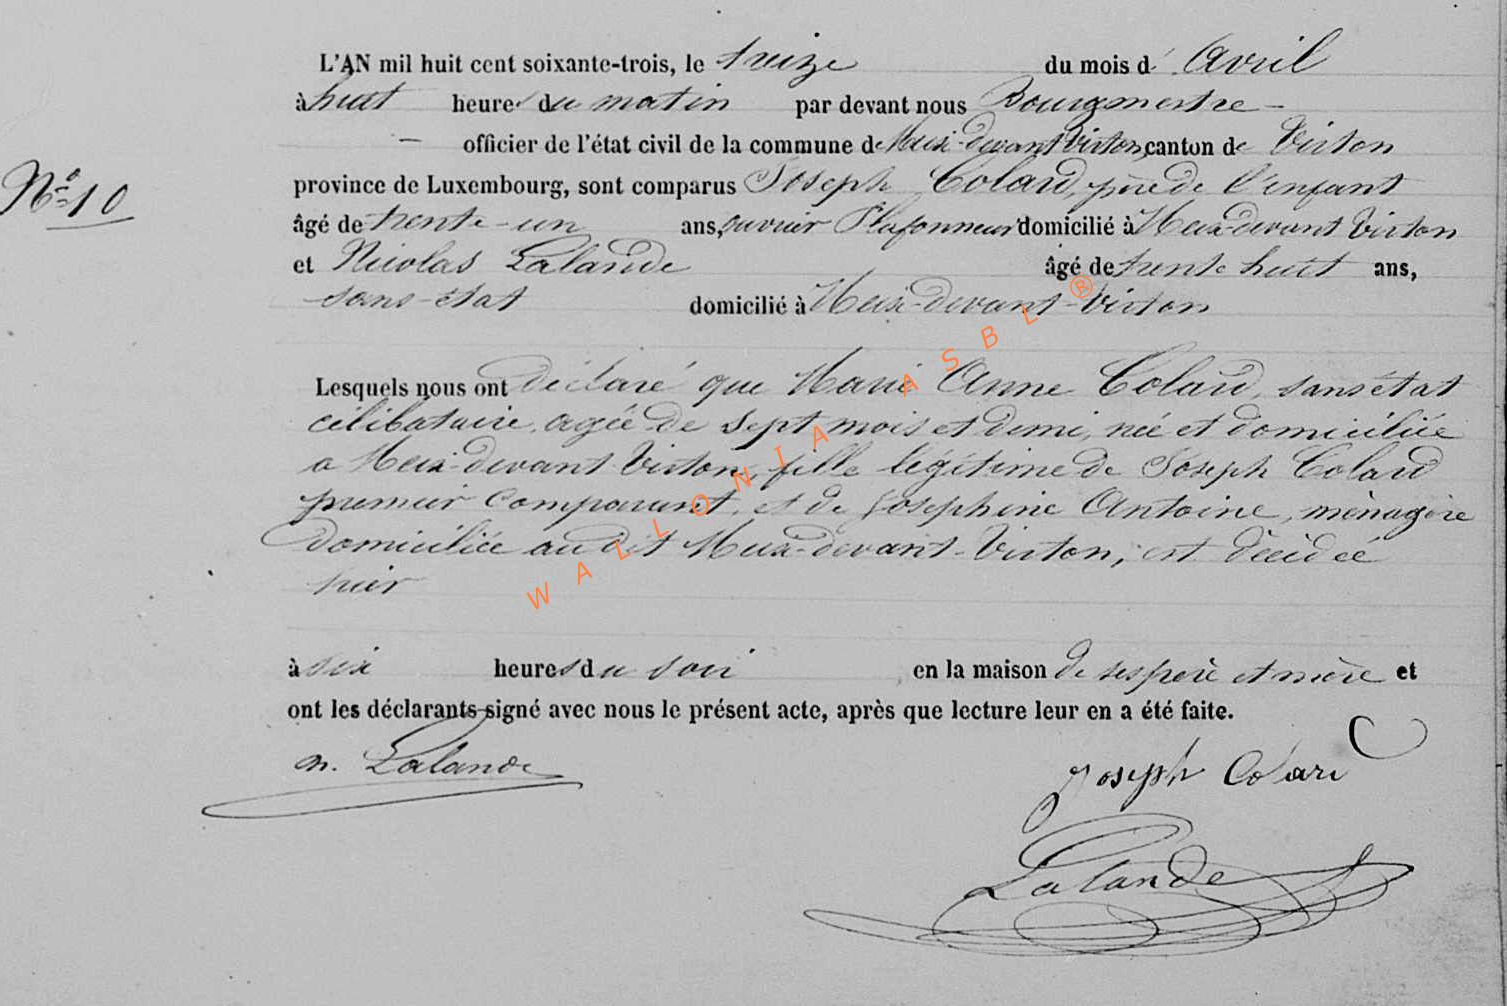 L'AN mil huit cent soixante-trois, le treize du mois d' Avril
à huit heures du matin par devant nous Bourgmestre –
– officier de l'état civil de la commune de Meix-devant Virton, canton de Virton
N° 10
province de Luxembourg, sont comparus Joseph Colard, père de l'enfant
âgé de trente-un ans, ouvrier Plafonneur domicilié à Meix-devant Virton
et Nicolas Lalande âgé de trente huit ans,
sans-état domicilié à Meix-devant-Virton
Lesquels nous ont déclaré que Marie Anne Colard, sans état
célibataire, agée de sept mois et demi, née et domiciliée
a Meix-devant-Virton, fille légitime de Joseph Colard
premier comparant, et de Josephine Antoine, ménagère
domiciliée au dit Meix-devant-Virton, est décédée
hier
à six heures du soir en la maison de ses père et mère et
ont les déclarants signé avec nous le présent acte, après que lecture leur en a été faite.
n. Lalande
Joseph Colard
Lalande
WALLONIA ASBL ®